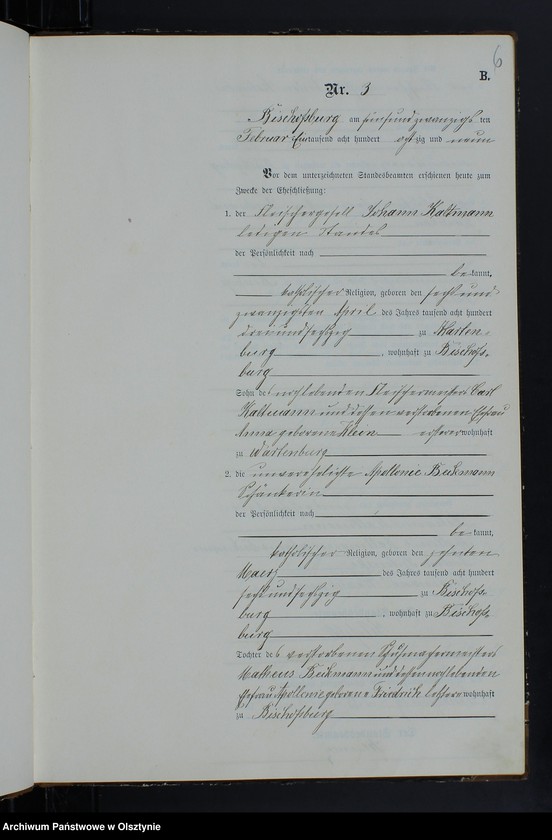 6
B.
Nr. 3
Bischofsburg am fünfundzwanzigs ten
Februar Eintausend acht hundert achtzig und neun
Vor dem unterzeichneten Standesbeamten erschienen heute zum
Zwecke der Eheschließung:
1. der Fleischergesell Johann Kaltmann
ledigen Standes
der Persönlichkeit nach
be kannt,
katholischer Religion, geboren den sechs und
zwanzigsten April des Jahres tausend acht hundert
dreiundsechzig zu Warten-
burg, wohnhaft zu Bischofs-
burg
Sohn des noch lebenden Fleischermeisters Carl
Kaltmann und dessen verstorbenen Ehefrau
Anna geborene Klein ersterer wohnhaft
zu Wartenburg
2. die unverehelichte Apollonie Beckmann
der Persönlichkeit nach
be kannt,
katholischer Religion, geboren den zehnten
Maerz des Jahres tausend acht hundert
sechsundsechzig zu Bischofs-
burg, wohnhaft zu Bischofs-
burg
Tochter des verstorbenen Schuhmachermeisters
Matheus Beckmann und dessen noch lebenden
Ehefrau Apollonie geborene Friedrich letztere wohnhaft
zu Bischofsburg
Archiwum Państwowe w Olsztynie